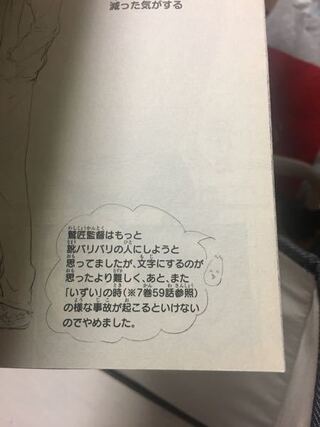 減った気がする
鷲匠監督はもっと
訛バリバリの人にしようと
思ってましたが、文字にするのが
思ったより難しく、あと、また
「いずい」の時(※7巻59話参照)
の様な事故が起こるといけない
のでやめました。